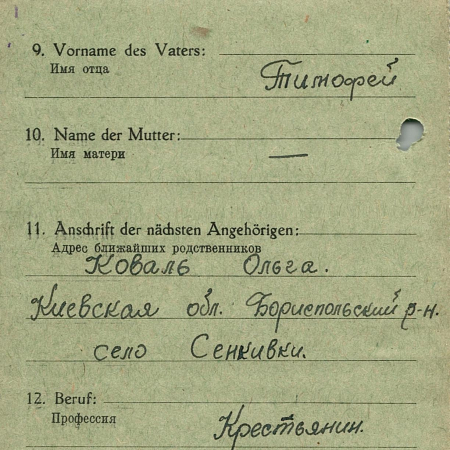 9. Vorname des Vaters:
Имя отца
Тимофей
10. Name der Mutter:
Имя матери
—
11. Anschrift der nächsten Angehörigen:
Адрес ближайших родственников
Коваль Ольга.
Киевская обл. Бориспольский р-н.
село Сенкивки.
12. Beruf:
Профессия
Крестьянин.